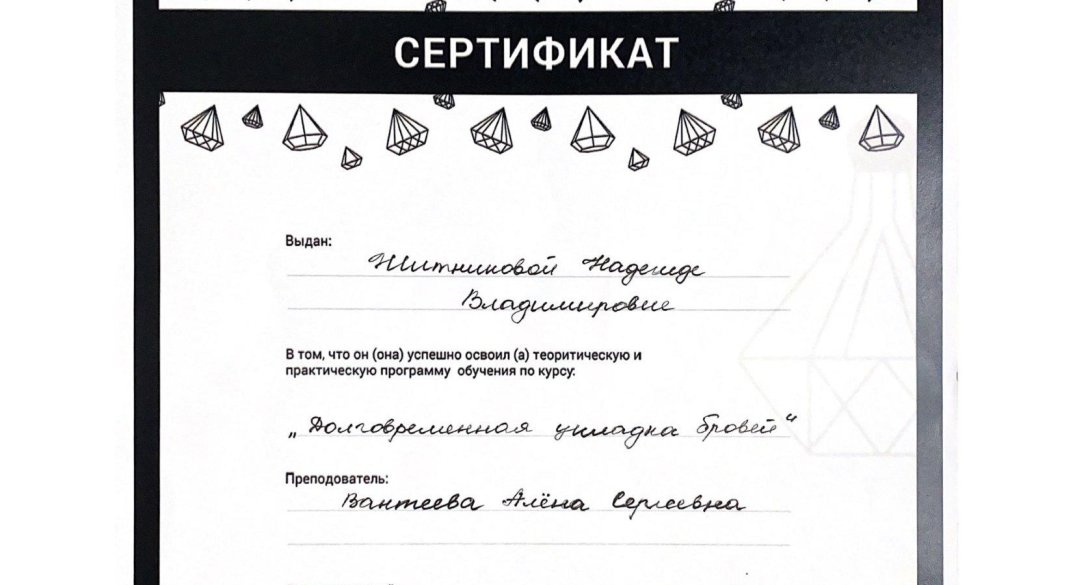 СЕРТИФИКАТ
Выдан:
Житниковой Надежде
Владимировне
В том, что он (она) успешно освоил (а) теоритическую и
практическую программу обучения по курсу:
„Долговременная укладка бровей“
Преподователь:
Вантеева Алёна Сергеевна